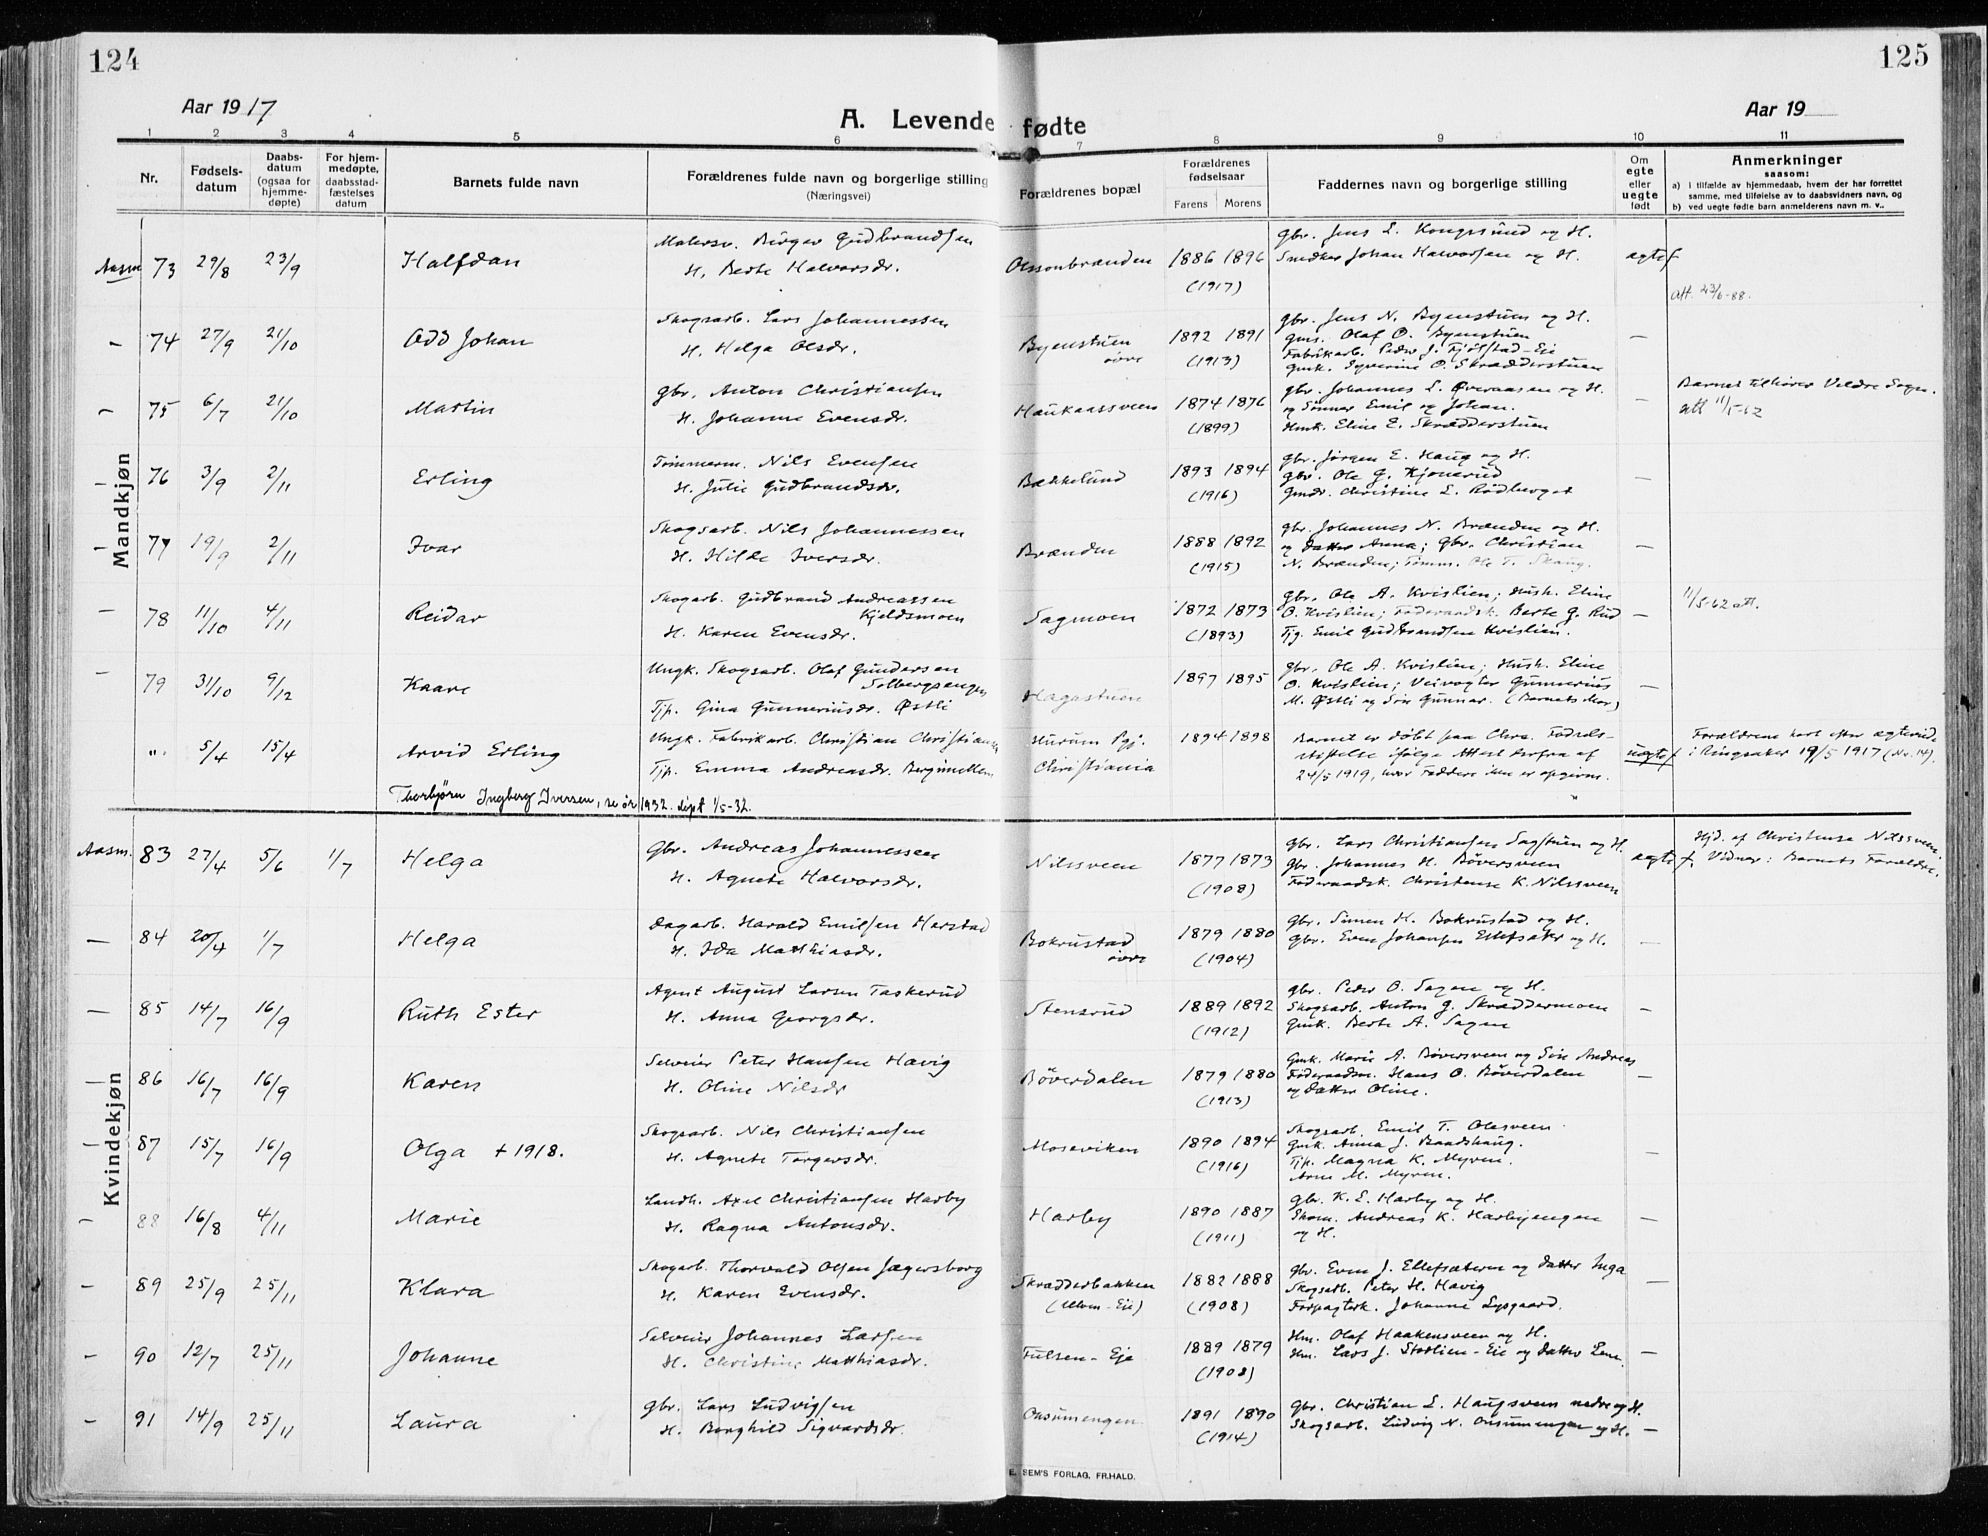 124
125
Aar 1917
A. Levende fødte
Aar 19
1 2 3 4 5 6 7 8 9 10 11
Nr.
Fødsels-
datum
Daabs-
datum
(ogsaa for
hjemme-
døpte)
For hjem-
medøpte,
daabsstad-
fæstelses
datum
Barnets fulde navn
Forældrenes fulde navn og borgerlige stilling
(Næringsvei)
Forældrenes bopæl
Forældrenes
fødselsaar
Farens Morens
Faddernes navn og borgerlige stilling
Om
egte
eller
uegte
født
Anmerkninger
saasom:
a) i tilfælde av hjemmedaab, hvem der har forrettet
samme, med tilføielse av to daabsvidners navn, og
b) ved uegte fødte barn anmelderens navn m. v..
Mandkjøn
Aasm 73 29/8 23/9 Halfdan
Malersv. Birger Gudbrandsen
H. Berte Halvorsdr.
Olssonbrænden
1886 1896
(1917)
Gbr. Jens L. Kongssund og H.
Snedker Johan Halvorsen og H.
ægtef
att. 23/6-88.
— 74 27/9 21/10 Odd Johan
Skogsarb. Lars Johannessen
H. Helga Olsdr.
Byenstuen
øvre
1892 1891
(1913)
Gbr. Jens N. Byenstuen og H.
Gms. Olaf O. Byenstuen
Fabrikarb. Peder J. Fjølstad-Eie
Gmk. Syverine O. Skrædderstuen
—
— 75 6/7 21/10 Martin
Gbr. Anton Christiansen
H. Johanne Evensdr.
Haukaassveen
1874 1876
(1899)
Gbr. Johannes L. Øveraasen og H.
og Sønner Emil og Johan.
Hmk. Eline E. Skrædderstuen
—
Barnet tilhører Veldre Sogn.
att 11/5-62
— 76 3/9 2/11 Erling
Tømmerm. Nils Evensen
H. Julie Gudbrandsdr.
Bækkelund
1893 1894
(1916)
Gbr. Jørgen E. Haug og H.
Gbr. Ole G. Kjonerud
Gmdr. Christine L. Rødberget
—
— 77 19/9 2/11 Ivar
Skogsarb. Nils Johannessen
H. Hilda Iversdr.
Brænden
1888 1892
(1915)
Gbr. Johannes N. Brænden og H.
og Datter Anna; Gbr. Christian
N. Brænden; Tømm. Ole T. Skaug.
—
— 78 11/10 4/11 Reidar
Skogarb. Gudbrand Andreassen
Kjeldsmoen
H. Karen Evensdr.
Sagmoen
1872 1873
(1893)
Gbr. Ole A. Kvislien; Hush. Eline
O. Kvislien; Føderaadsk. Berte G. Rud
Tjg. Emil Gudbrandsen Kvislien.
—
11/5-62 att.
— 79 31/10 9/12 Kaare
Ungk. Skogsarb. Olaf Gundersen
Solbergsengen
Tjp. Gina Gunneriusdr. Østli
Hagastuen
1897 1895
Gbr. Ole A. Kvislien; Hush. Eline
O. Kvislien; Veivogter Gunnerius
M. Østli og Søn Gunnar. (Barnets Mor)
—
" 5/4 15/4 Arvid Erling
Ungk. Fabrikarb. Christian Christiansen
Tjp. Emma Andreasdr. Bergimellem
Hurum Pgj.
Christiania
1894 1898
Barnet er døbt paa Chra. Fødsels-
stiftelse ifølge Attest derfra af
24/5 1919, hvor Faddere ikke er opgivne.
uægtef
Forældrene har efter ægteviede
i Ringsaker 19/5 1917 (Nr. 14).
Thorbjørn Ingberg Iversen, se år 1932. døpt 1/5-32.
Kvindekjøn
Aasm. 83 27/4 5/6 1/7 Helga
Gbr. Andreas Johannessen
H. Agnete Halvorsdr.
Nilssveen
1877 1873
(1908)
Gbr. Lars Christiansen Sagstuen og H.
Gbr. Johannes H. Bøversveen
Føderaadsk. Christense K. Nilssveen
ægtef
Hjd. af Christense Nilssveen.
Vidner: Barnets Forældre.
— 84 20/4 1/7 Helga
Dagarb. Harald Emilsen Harstad
H. Ida Matthiasdr.
Bokrustad
øvre
1879 1880
(1904)
Gbr. Simen H. Bokrustad og H.
Gbr. Even Johansen Ellefsæter og H.
—
— 85 14/7 16/9 Ruth Ester
Agent August Larsen Taskerud
H. Anna Georgsdr.
Stensrud
1889 1892
(1912)
Gbr. Peder O. Sagen og H.
Skogsarb. Anton G. Skræddermoen
Gmk. Berte A. Sagen
—
— 86 16/7 16/9 Karen
Selveier Peter Hansen Hævig
H. Oline Nilsdr
Bøverdalen
1879 1880
(1913)
Gmk. Marie A. Bøversveen og Søn Andreas
Føderaadsm. Hans O. Bøverdalen
og Datter Oline.
—
— 87 15/7 16/9 Olga + 1918.
Skogsarb. Nils Christiansen
H. Agnete Torgersdr.
Moseviken
1890 1894
(1916)
Skogsarb. Emil T. Olasveen
Gmk. Anna J. Baadshaug.
Tjp. Magna K. Myren.
Arne M. Myren.
—
— 88 16/8 4/11 Marie
Landh. Axel Christiansen Harby
H. Ragna Antonsdr.
Harby
1890 1887
(1911)
Gbr. K. E. Harby og H.
Skom. Andreas K. Harbyengen
og H.
—
— 89 25/9 25/11 Klara
Skogarb. Thorvald Olsen Jægersborg
H. Karen Evensdr.
Skrædderbakken
(Ulven-Eie)
1882 1888
(1908)
Gbr. Even J. Ellefsæteren og Datter Inga
Skogsarb. Peter H. Hævig
Forpagterk. Johanne Lysgaard.
—
— 90 12/7 25/11 Johanne
Selveier Johannes Larsen
H. Christine Matthiasdr.
Fulsen-Eje
1889 1879
(1908)
Hm. Olaf Haakensveen og H.
Hm. Lars J. Stodlien-Eie og Datter Lene
—
— 91 14/9 25/11 Laura
Gbr. Lars Ludvigsen
H. Borghild Sigvardsdr.
Onsumengen
1891 1890
(1914)
Gbr. Christian L. Haugsveen nedre og H.
Skogsarb. Ludvig N. Onsumengen og H.
—
E. SEM'S FORLAG, FR.HALD.